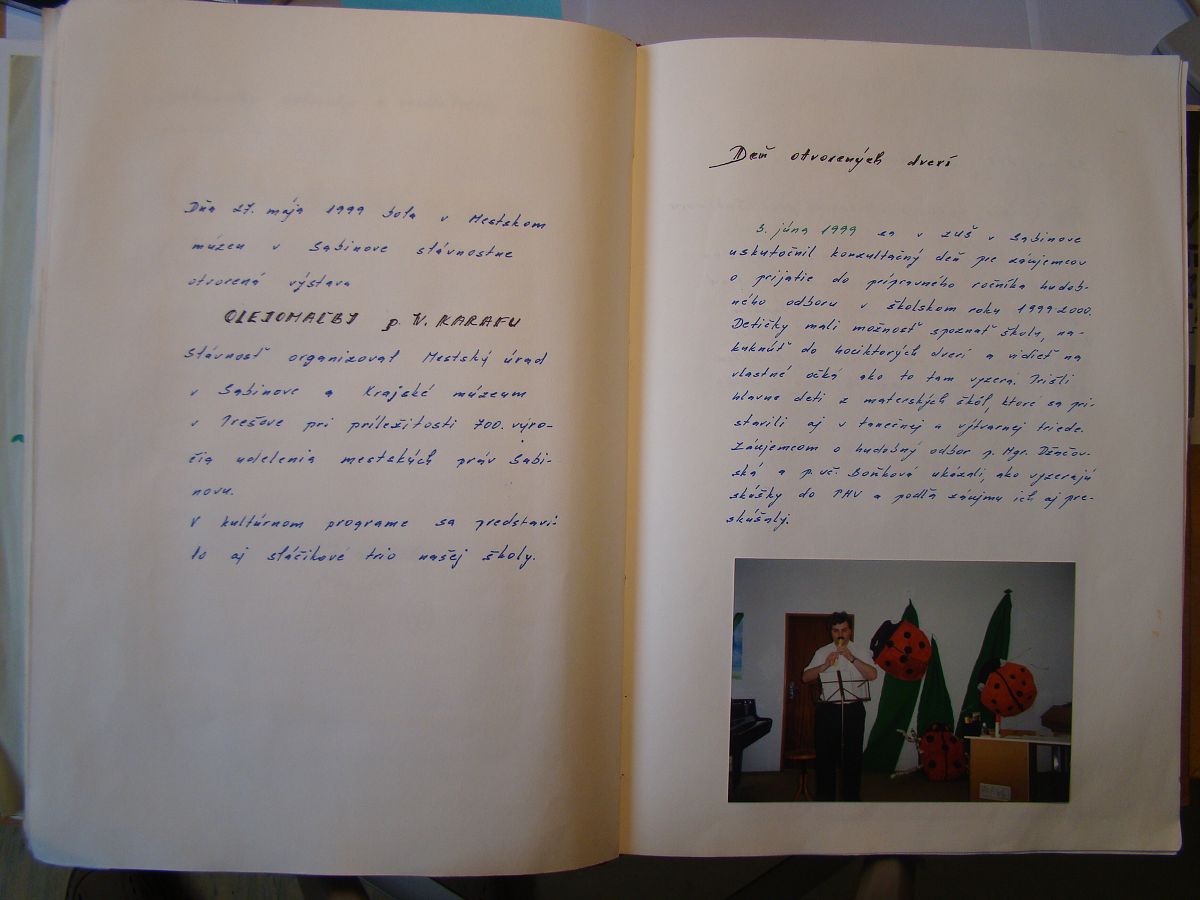 Dňa 27. mája 1999 bola v Mestskom
múzeu v Sabinove slávnostne
otvorená výstava
OLEJOMAĽBY p. N. KARAFU
Slávnosť organizoval Mestský úrad
v Sabinove a Krajské múzeum
v Prešove pri príležitosti 700. výro-
čia udelenia mestských práv Sabi-
novu.
V kultúrnom programe sa predstavi-
lo aj sláčikové trio našej školy.
Deň otvorených dverí
3. júna 1999 sa v ZUŠ v Sabinove
uskutočnil konzultačný deň pre záujemcov
o prijatie do prípravného ročníka hudob-
ného odboru v školskom roku 1999 2000.
Detičky mali možnosť spoznať školu, na-
kuknúť do hociktorých dverí a vidieť na
vlastné očká ako to tam vyzerá. Prišli
hlavne deti z materských škôl, ktoré sa pri-
stavili aj v tanečnej a výtvarnej triede.
Záujemcom o hudobný odbor p. Mgr. Dzačov-
ská a p. uč. Boňková ukázali, ako vyzerajú
skúšky do PHV a podľa záujmu ich aj pre-
skúšaly.